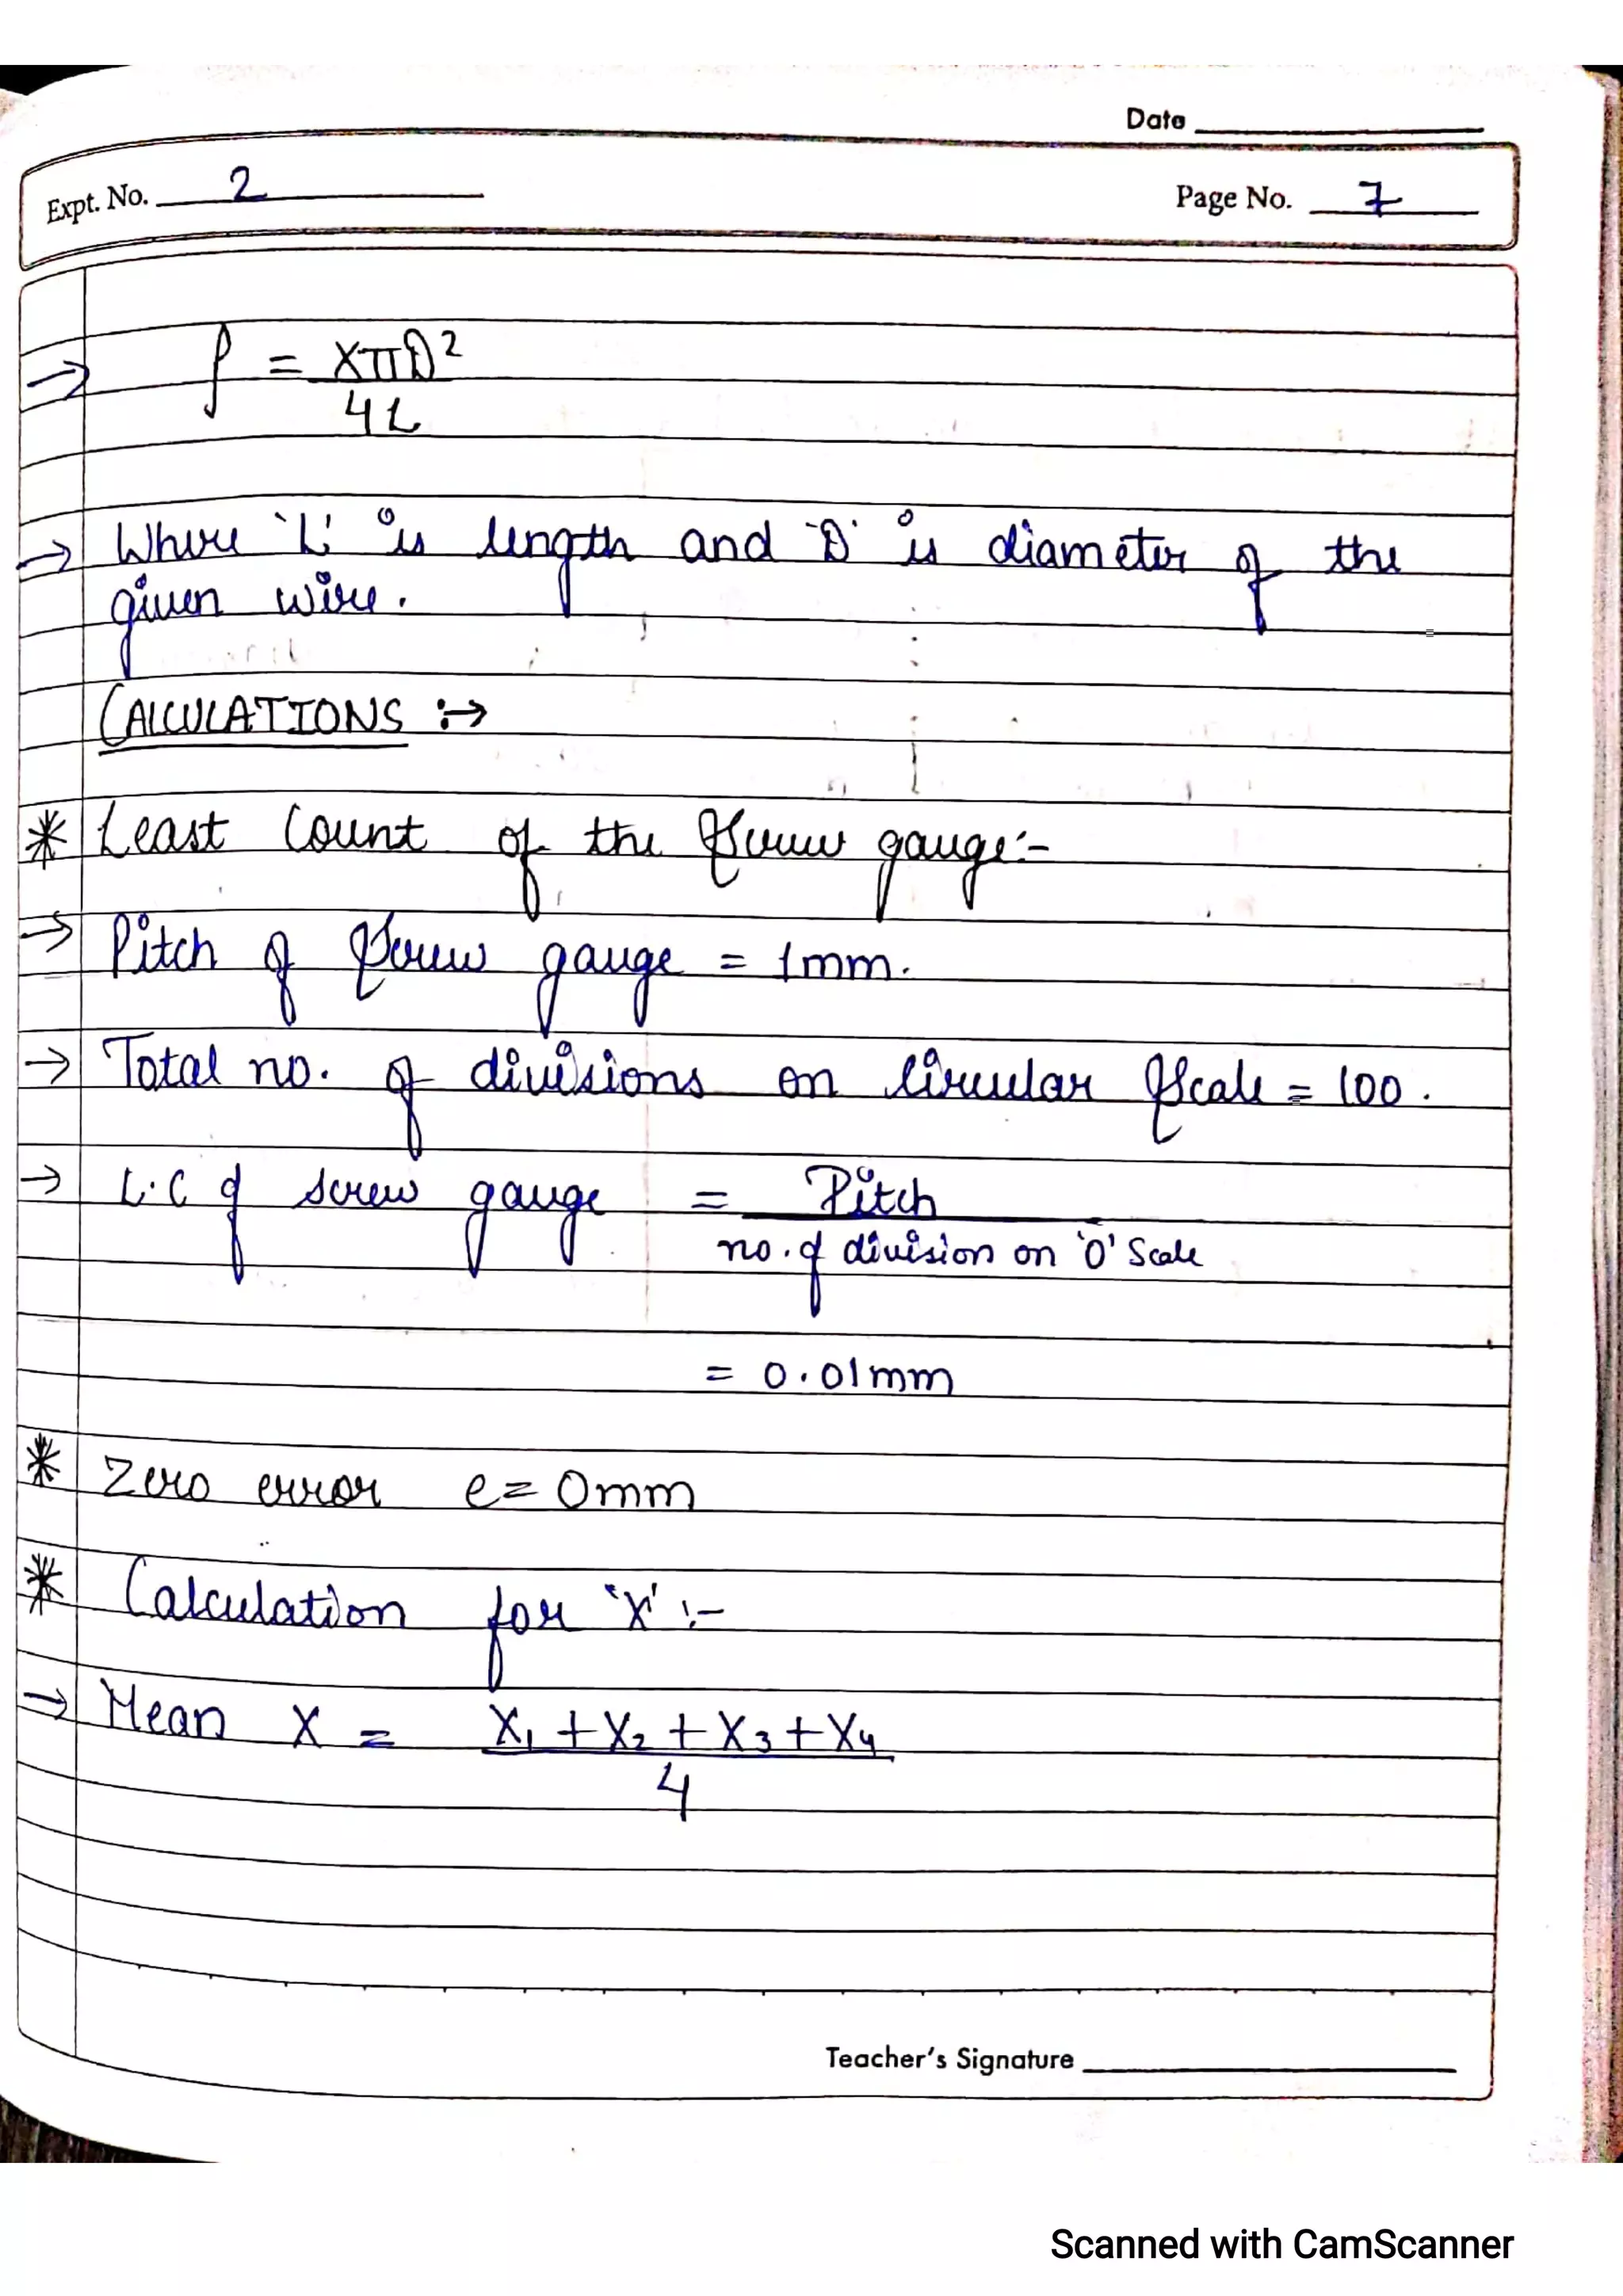 Date
Expt. No. 2
Page No. 7
→ ρ = XπD²
4L
→ Where 'L' is length and 'D' is diameter of the
given wire.
CALCULATIONS :→
* Least Count of the Screw gauge:-
→ Pitch of Screw gauge = 1mm.
→ Total no. of divisions on circular Scale = 100.
→ L.C of screw gauge = Pitch
no. of division on 'O' Scale
= 0.01mm
* Zero error e = 0mm
* Calculation for 'X' :-
→ Mean X = X₁ + X₂ + X₃ + X₄
4
Teacher's Signature
Scanned with CamScanner